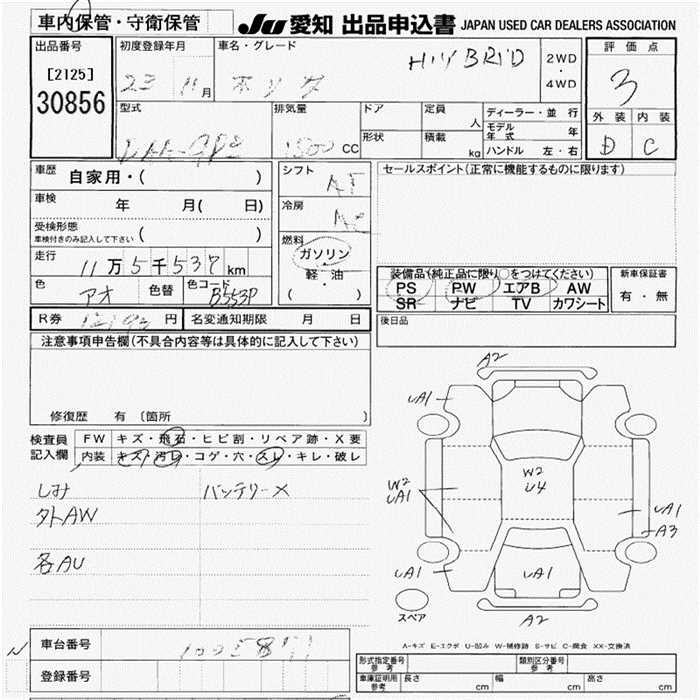 車内保管・守衛保管
JU 愛知 出品申込書 JAPAN USED CAR DEALERS ASSOCIATION
出品番号
[2125]
30856
初度登録年月
23 11月
車名・グレード
ホンダ
HYBRID
2WD
・
4WD
評価点
3
外装 内装
D C
型式
排気量
1500 cc
ドア
形状
定員
人
積載
kg
ディーラー・並行
モデル年式 年
ハンドル 左・右
車歴
自家用・( )
車検
年 月( 日)
受検形態
車検付きのみ記入して下さい ( )
走行
11万5千537km
色
アオ
色替
色コード
B553P
シフト
AT
冷房
AC
燃料
ガソリン
・
軽・油
( )
セールスポイント(正常に機能するものに限ります)
装備品(純正品に限り○をつけてください)
PS PW エアB AW
SR ナビ TV カワシート
新車保証書
有・無
R券 円
名変通知期限 月 日
後日品
注意事項申告欄(不具合内容等は具体的に記入して下さい)
修復歴 有 〔箇所 〕
検査員記入欄
FW キズ・飛石・ヒビ割・リペア跡・X要
内装 キズ・汚レ・コゲ・穴・スレ・キレ・破レ
しみ バッテリーX
外AW
各AU
A2
UA1
UA1
W2
UA1
W2
U4
UA1
A3
UA1
UA1
UA1
スペア
A2
A-キズ E-エクボ U-凹み W-補修跡 S-サビ C-腐食 XX-交換済
車台番号
登録番号
型式指定番号 参考
類別区分番号 参考
車庫証明用 参考
長さ cm 幅 cm 高さ cm